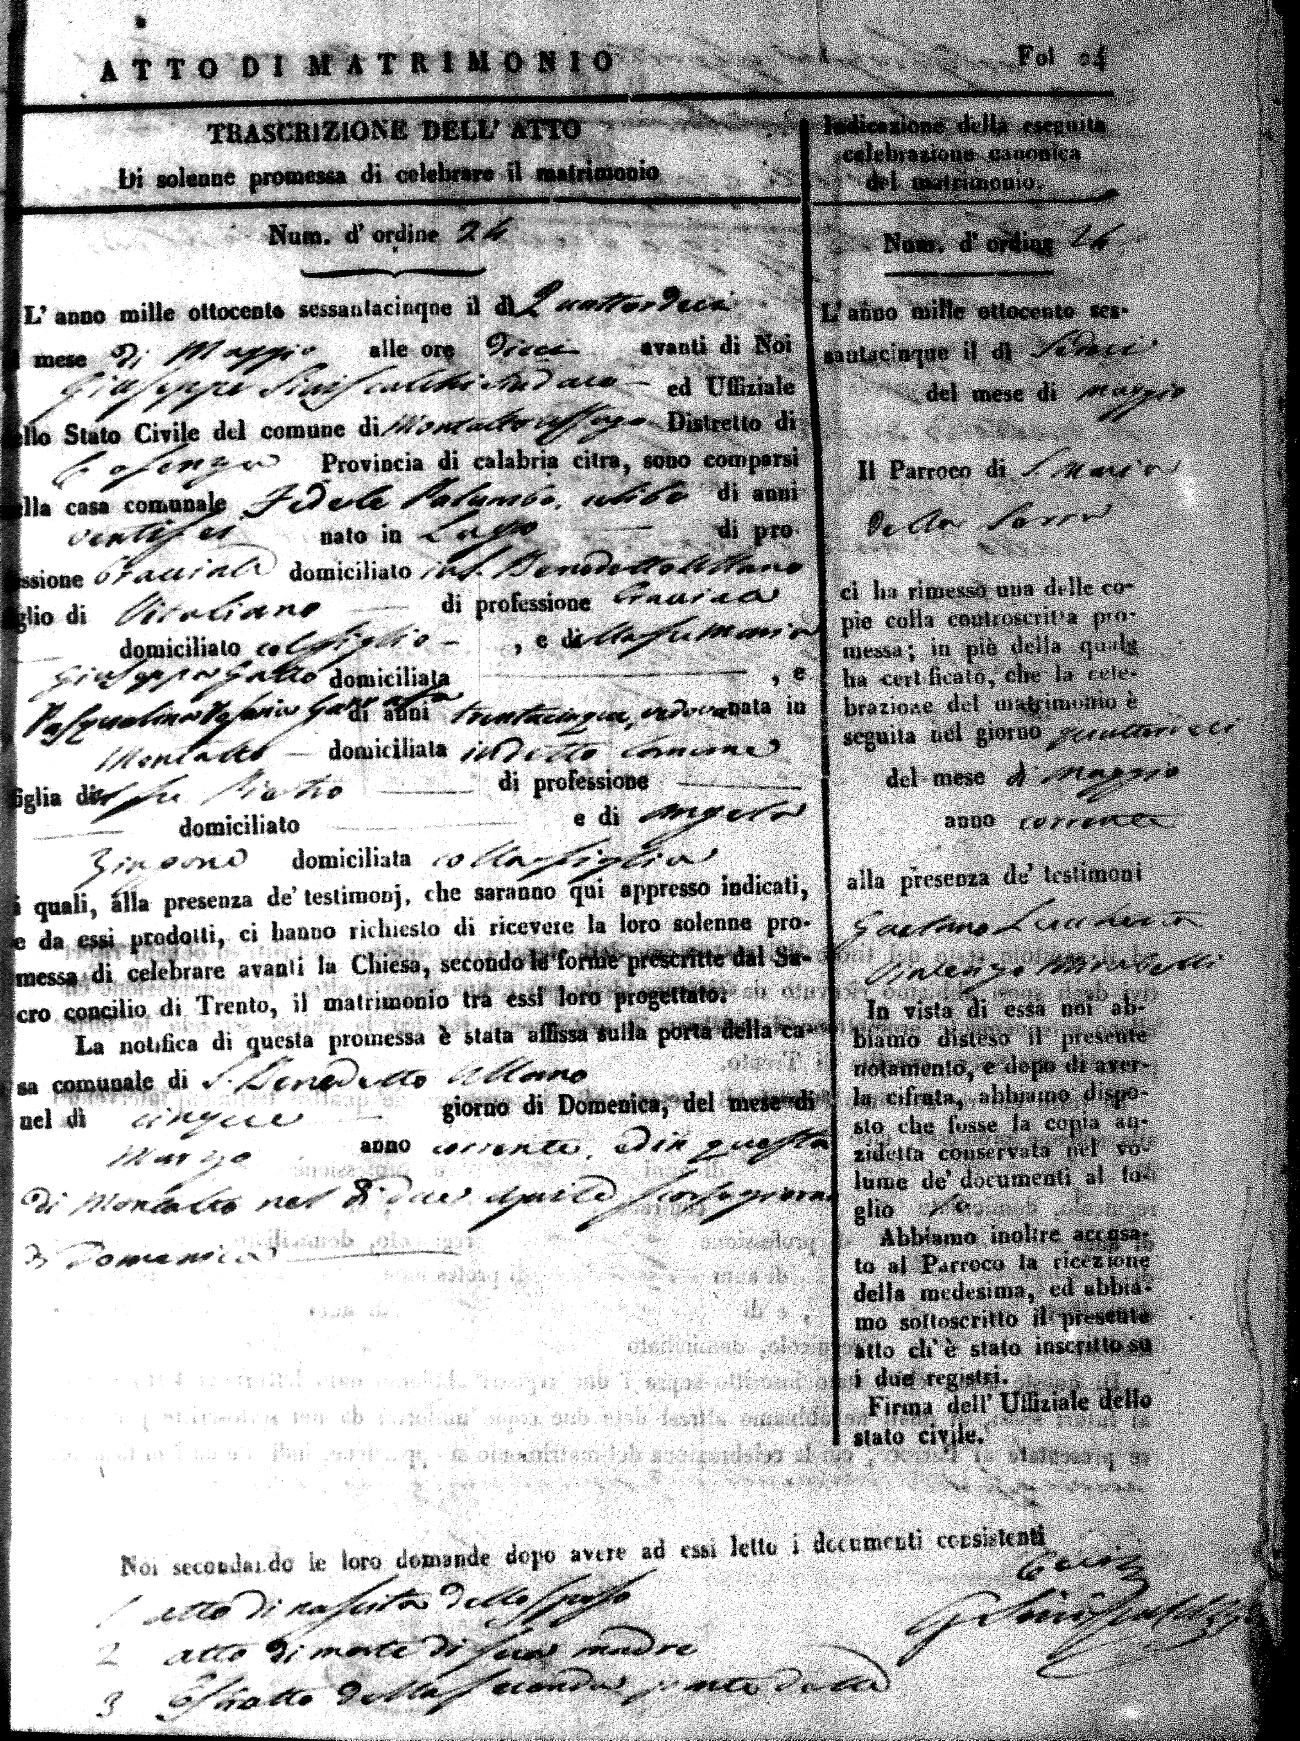 ATTO DI MATRIMONIO
Fol 24
TRASCRIZIONE DELL' ATTO
Di solenne promessa di celebrare il matrimonio
Num. d' ordine 24
L' anno mille ottocento sessantacinque il dì Quattordeci
mese di Maggio alle ore dieci avanti di Noi
Giuseppe Siniscalchi Sindaco ed Uffiziale
ello Stato Civile del comune di Montalto Uffugo Distretto di
Cosenza Provincia di calabria citra, sono comparsi
ella casa comunale Fedele Palumbo, celibe di anni
ventisei nato in Lago di pro-
ssione bracciale domiciliato in S. Benedetto Ullano
glio di Vitaliano di professione bracciale
domiciliato col figlio , e di della fu Maria
Giuseppa Gatto domiciliata , e
Pasqualina di anni trentacinque, vedova nata in
Montalto domiciliata in detto Comune
figlia di del fu Pietro di professione
domiciliato e di Angela
domiciliata colla figlia
i quali, alla presenza de' testimonj, che saranno qui appresso indicati,
e da essi prodotti, ci hanno richiesto di ricevere la loro solenne pro-
messa di celebrare avanti la Chiesa, secondo le forme prescritte dal Sa-
cro concilio di Trento, il matrimonio tra essi loro progettato.
La notifica di questa promessa è stata affissa sulla porta della ca-
sa comunale di S. Benedetto Ullano
nel dì cinque giorno di Domenica, del mese di
Marzo anno corrente, ed in questa
di Montalto nel dì due Aprile scorso giorno
di Domenica
Noi secondando le loro domande dopo avere ad essi letto i documenti consistenti
1 atto di nascita dello sposo
2 atto di morte di sua madre
3 Estratto della seconda parte della
Indicazione della eseguita
celebrazione canonica
del matrimonio.
Num. d' ordine 24
L' anno mille ottocento ses-
santacinque il dì Sedeci
del mese di Maggio
Il Parroco di S. Maria
della Serra
ci ha rimesso una delle co-
pie colla controscritta pro-
messa; in piè della quale
ha certificato, che la cele-
brazione del matrimonio è
seguita nel giorno quattordeci
del mese di Maggio
anno corrente
alla presenza de' testimoni
Gaetano
Mirabelli
In vista di essa noi ab-
biamo disteso il presente
notamento, e dopo di aver-
la cifrata, abbiamo dispo-
sto che fosse la copia an-
zidetta conservata nel vo-
lume de' documenti al fo-
glio
Abbiamo inoltre accusa-
to al Parroco la ricezione
della medesima, ed abbia-
mo sottoscritto il presente
atto ch' è stato inscritto su
i due registri.
Firma dell' Uffiziale dello
stato civile.
G Siniscalchi